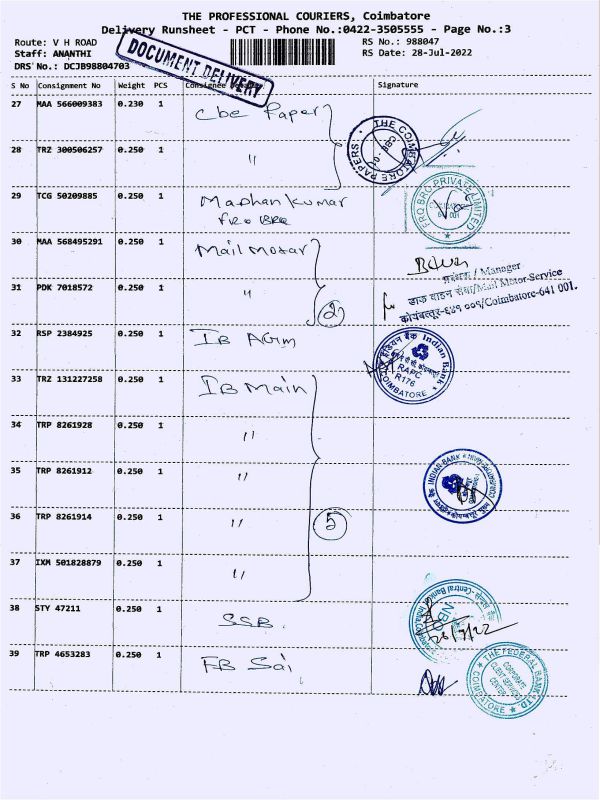 THE PROFESSIONAL COURIERS, Coimbatore
Delivery Runsheet - PCT - Phone No.:0422-3505555 - Page No.:3
Route: V H ROAD RS No.: 988047
Staff: ANANTHI RS Date: 28-Jul-2022
DRS No.: DCJB98804703
DOCUMENT DELIVERY
S No Consignment No Weight PCS Consignee Signature
27 MAA 566009383 0.230 1 Cbe Paper
THE COIMBATORE PAPERS
28 TRZ 300506257 0.250 1 "
29 TCG 50209885 0.250 1 Madhan Kumar
FRO BRO
FRO BRO PRIVATE LIMITED
30 MAA 568495291 0.250 1 Mail Motor
प्रबंधक / Manager
डाक वाहन सेवा/Mail Motor-Service
कोयंबत्तूर-६४१ ००१/Coimbatore-641 001.
31 PDK 7018572 0.250 1 " 2
32 RSP 2384925 0.250 1 IB AGM
इंडियन बैंक Indian Bank
RAPC
R176
COIMBATORE
33 TRZ 131227258 0.250 1 IB Main
34 TRP 8261928 0.250 1 "
35 TRP 8261912 0.250 1 "
INDIAN BANK
36 TRP 8261914 0.250 1 " 5
37 IXM 501828879 0.250 1 "
38 STY 47211 0.250 1 SSB.
Central Bank of India
28/7/22
39 TRP 4653283 0.250 1 FB Sai
THE FEDERAL BANK LTD
CORPORATE
CLIENT SERVICES
CENTER
COIMBATORE